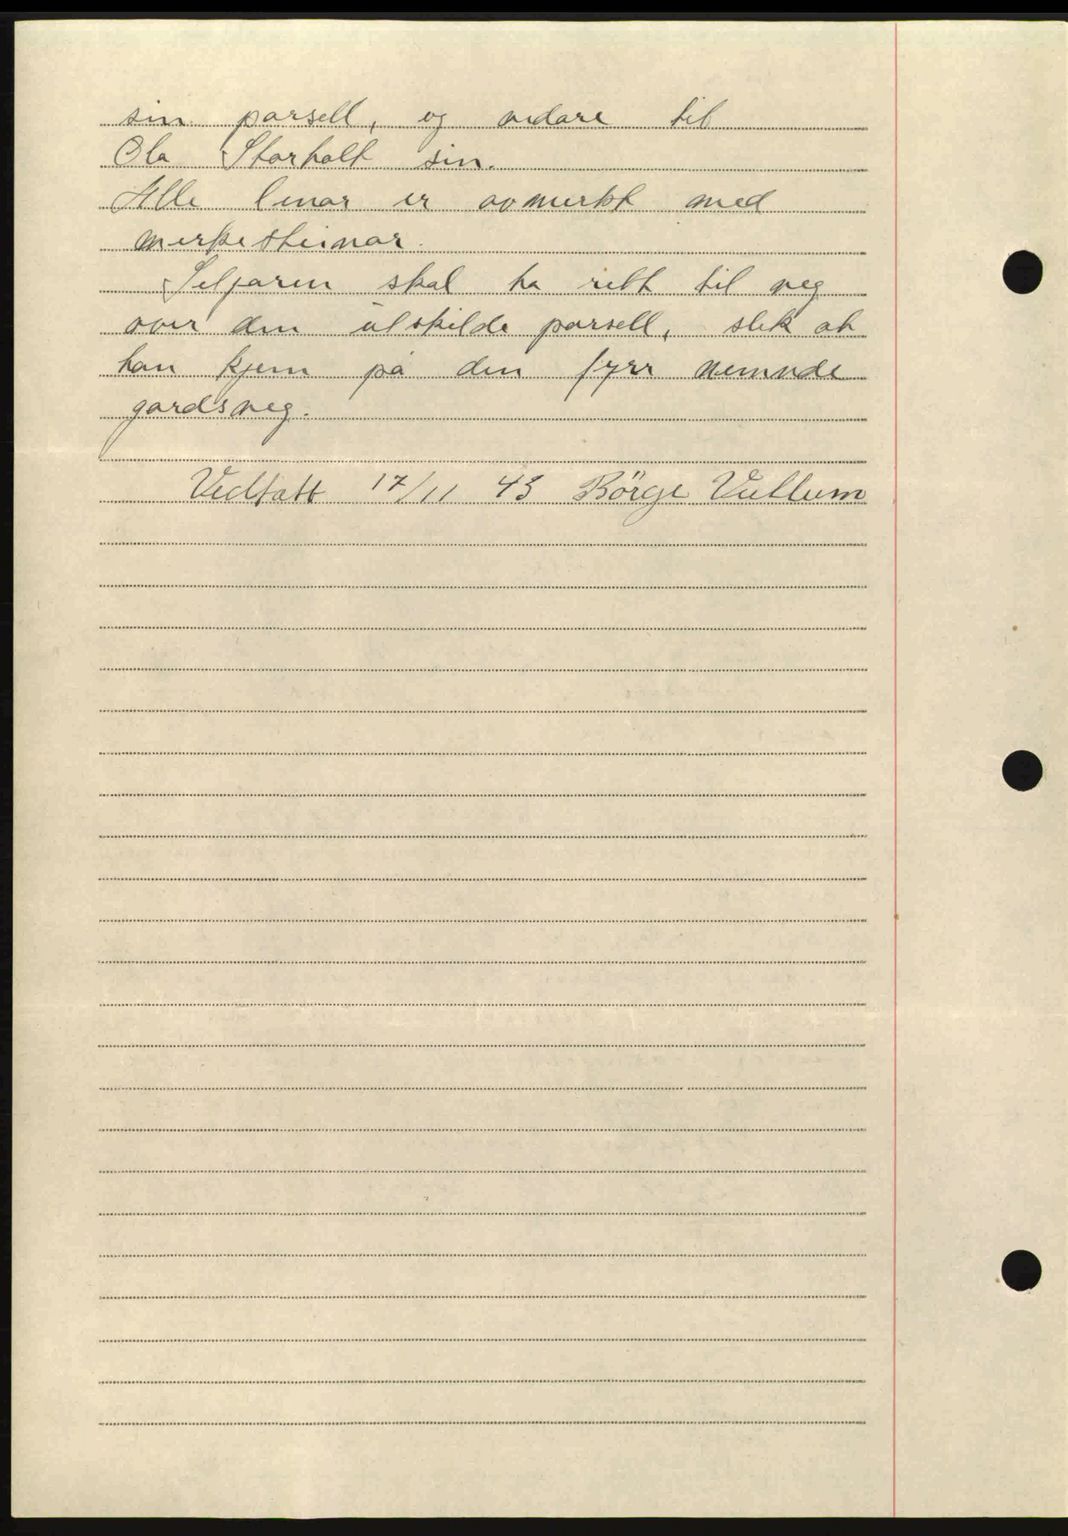 sin parsell, og vidare til
Ola Storholt sin.
Alle linar er avmerkt med
merkesteinar.
Seljaren skal ha rett til veg
over den utskilde parsell, slik at
han kjem på den fyrr nemnde
gardsveg.
Vedtatt 17/11 43 Börge Vullum